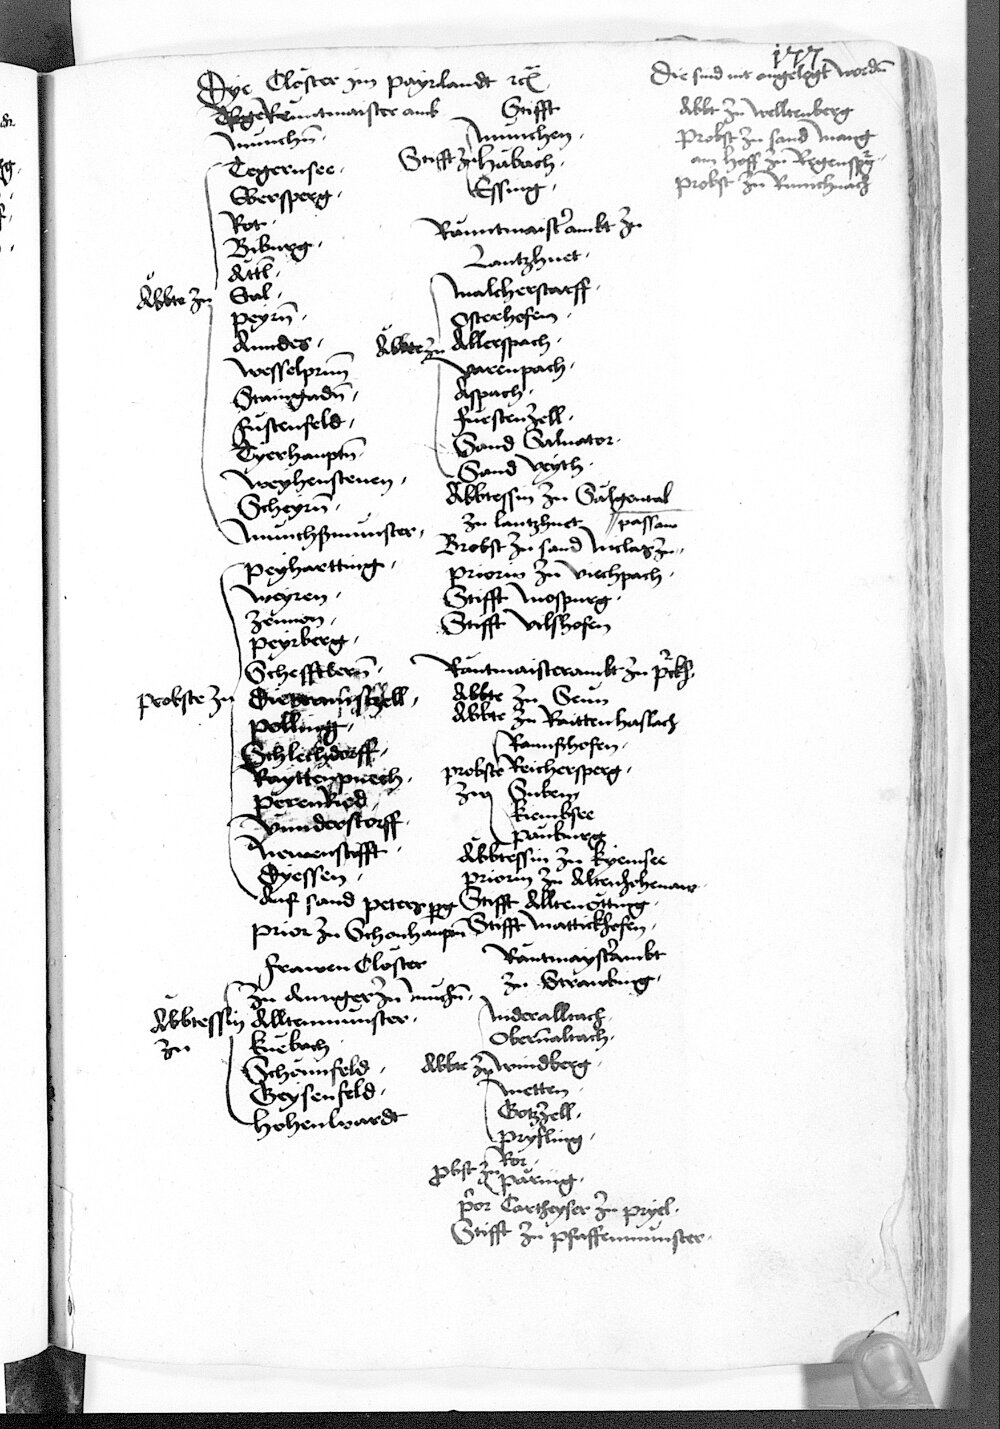 177
Dye Closter jm payrlandt rc
Rentmaister ambt
munchn
Abbte zu
Tegernsee
Ebersperg
Rot
Biburg
Attl
Stal
peyrn
Anndes
wesselprun
Staingadn
fustenfeld
Tyerhauptn
weyhensteuen
Scheyrn
munchsmunster
probste zu
peyhartting
weyren
peyrberg
Schefftlern
Dietramszell
polling
Schlechdorff
Rayttenpuech
perenRied
Unnderstorff
Newenstifft
Dyessen
Auf sand peters perg
prior zu Schonhauptn
frawen Closter
Abbtessin
zu
zu Annger zu munchn
Alltenmunster
kuebach
Schonnfeld
Geysenfeld
hohenwardt
Stifft
Stifft zu
munchen
habach
Essing
Ranntmaister ambt zu
Lantzhuet
Abbte zu
malcherstorff
Osterhofen
Allerspach
varenpach
Aspach
furstenzell
Sand Saluator
Sand veyth
Abbtessin zu Saligental
zu lantzhuet
Brobst zu sand Niclas zu
passaw
priorin zu viechpach
Stifft mospurg
Stifft vilshofen
Rantmaisterambt zu
Abbte zu Seun
Abbte zu Raittenhaslach
probste
zu
Rannshofen
Reichersperg
Suben
kiembsee
paumburg
Abbtessin zu kyemsee
priorin zu Altenhohenaw
Stifft Alltenötting
Stifft mattickhofen
Rantmaysterambt
zu Strawbing
Abbte zu
Nideralltach
Obernaltach
windberg
metten
Gotzzell
pryfling
pbst zu
Ror
paring
prior Cartheyser zu pryel
Stifft zu pfaffenmunster
Die sind nit angelegt worden
Abbt zu welltenberg
probst zu sand mang
am hoff zu Regenspurg
probst zu Rinchnach